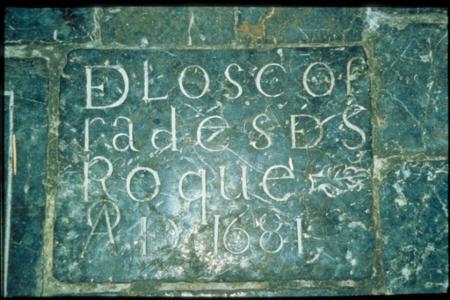 DLOSCOf
radés DS
Roque
AD 1681